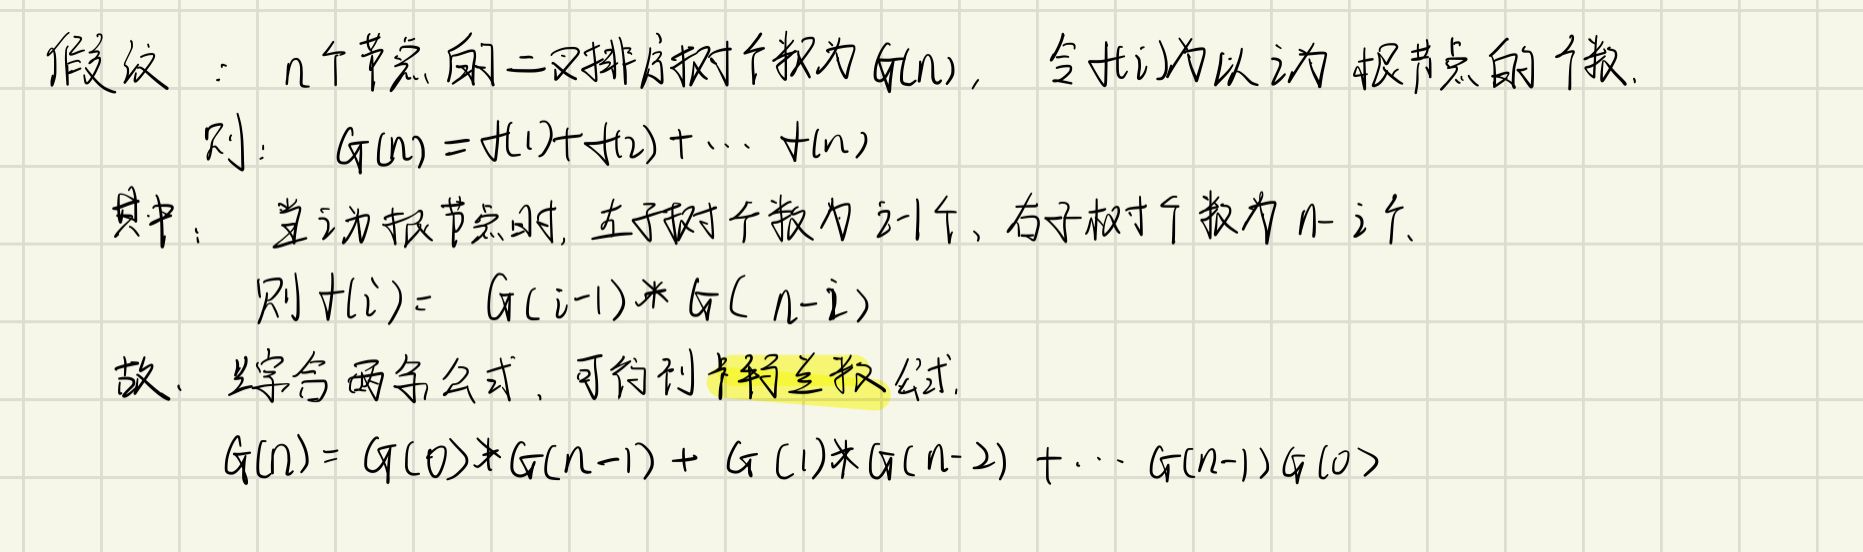 假设 : n个节点的二叉排序树个数为G(n), 令f(i)为以i为根节点的个数.
则: G(n) = f(1)+f(2)+··· f(n)
其中: 当i为根节点时, 左子树个数为 i-1个、右子树个数为 n-i个.
则f(i)= G(i-1)*G(n-i)
故、综合两条公式、可得到卡特兰数公式.
G(n)= G(0)*G(n-1) + G(1)*G(n-2) +··· G(n-1)G(0)